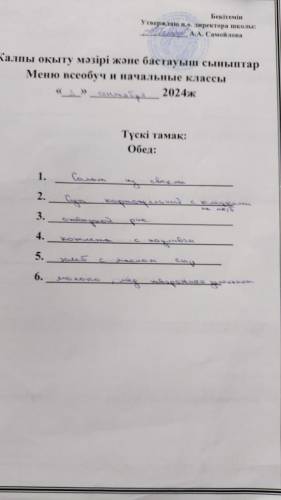 Бекітемін
Утверждаю и.о. директора школы:
А.А. Самойлова
Жалпы оқыту мәзірі және бастауыш сыныптар
Меню всеобуч и начальные классы
« 2 » сентября 2024ж
Түскі тамақ:
Обед:
1. Салат из свеклы
2. Суп картофельный с клецками
3. отварной рис
4. котлета с
5. хлеб с маслом сыр
6. молоко,